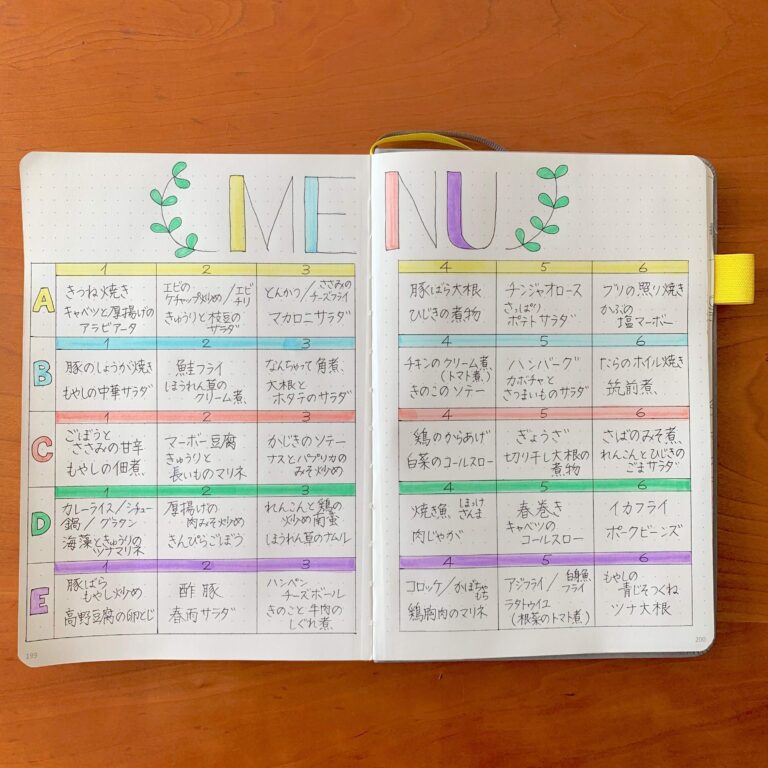 MENU
1 2 3 4 5 6
A
きつね焼き
キャベツと厚揚げの
アラビアータ
エビの
ケチャップ炒め/エビ
チリ
きゅうりと枝豆の
サラダ
とんかつ/ささみの
チーズフライ
マカロニサラダ
豚ばら大根
ひじきの煮物
チンジャオロース
さっぱり
ポテトサラダ
ブリの照り焼き
かぶの
塩マーボー
1 2 3 4 5 6
B
豚のしょうが焼き
もやしの中華サラダ
鮭フライ
ほうれん草の
クリーム煮、
なんちゃって角煮、
大根と
ホタテのサラダ
チキンのクリーム煮、
(トマト煮、)
きのこのソテー
ハンバーグ
カボチャと
さつまいものサラダ
たらのホイル焼き
筑前煮、
1 2 3 4 5 6
C
ごぼうと
ささみの甘辛
もやしの佃煮、
マーボー豆腐
きゅうりと
長いものマリネ
かじきのソテー
ナスとパプリカの
みそ炒め
鶏のからあげ
白菜のコールスロー
ぎょうざ
切り干し大根の
煮物
さばのみそ煮、
れんこんとひじきの
ごまサラダ
1 2 3 4 5 6
D
カレーライス/シチュー
鍋/グラタン
海藻ときゅうりの
ツナマリネ
厚揚げの
肉みそ炒め
きんぴらごぼう
れんこんと鶏の
炒め南蛮
ほうれん草のナムル
焼き魚、ほっけ
さんま
肉じゃが
春巻き
キャベツの
コールスロー
イカフライ
ポークビーンズ
1 2 3 4 5 6
E
豚ばら
もやし炒め
高野豆腐の卵とじ
酢豚
春雨サラダ
ハンペン
チーズボール
きのこと牛肉の
しぐれ煮、
コロッケ/かぼちゃ
もち
鶏胸肉のマリネ
アジフライ/白身魚
フライ
ラタトゥイユ
(根菜のトマト煮)
もやしの
青じそつくね
ツナ大根
199
200